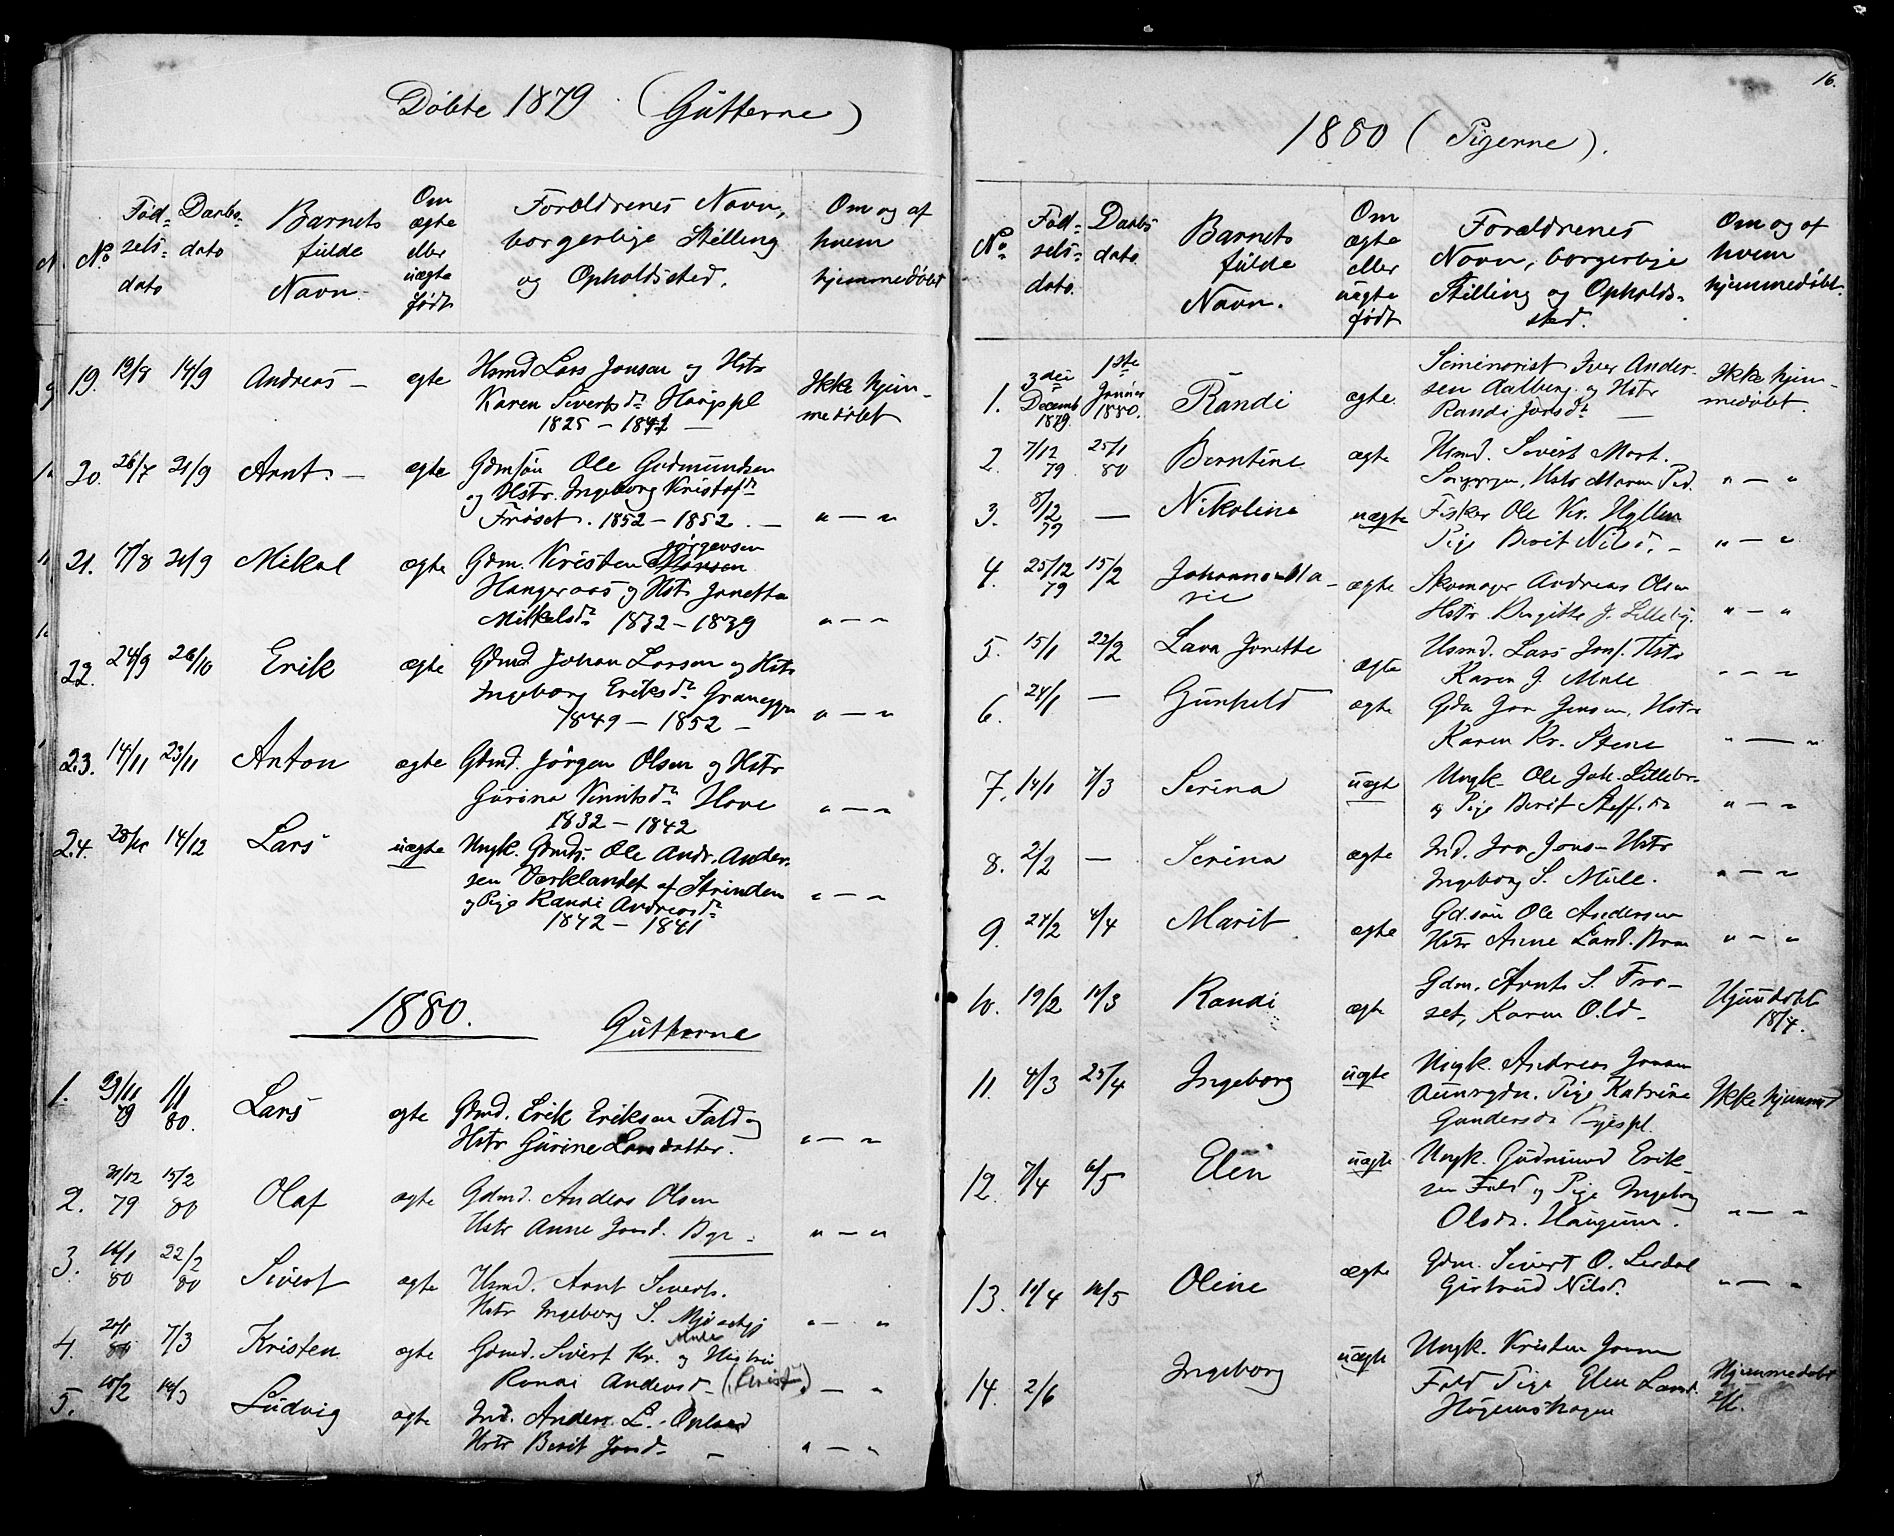 Døbte 1879 (Gutterne)
No
Fød-
sels-
dato
Daabs-
dato
Barnets
fulde
Navn.
Om
ægte
eller
uægte
født
Forældrenes Navn,
borgerlige Stilling
og Opholdssted.
Om og af
hvem
hjemmedøbt
19. 12/8 14/9 Andreas – ægte Hsmd Lars Jonsen og Hstr
Karen Sivertsdr Haugspl
1825 –
Ikke hjem-
medøbt
20. 26/7 21/9 Arnt. – ægte Gdmsøn Ole Gudmundsen
og Hstr. Ingeborg Kristofdr
Frøset. 1852 – 1852. – " — "
21. 17/8 21/9 Mikal ægte Gdm. Kristen Jørgensen
Hangeraas og Hstr Jonetta
Mikkelsdr 1832 – 1839 " — "
22. 24/9 26/10 Erik ægte Gdmd. Johan Larsen og Hstr
Ingeborg Eriksdr
1849 – 1852 – " — "
23. 14/11 23/11 Anton ægte Gdmd. Jørgen Olsen og Hstr
Gurina Knutsdr Hove
1832 – 1842 " — "
24. 14/12 Lars uægte Ungk. Gdmds. Ole Andr. Ander-
sen Værklandet af Strinden
og Pige Randi Andreasdr
1842 – 1841 " — "
1880. Gutterne
1. 29/11 79 1/1 80. Lars ægte Gdmd. Erik Eriksen Fald og
Hstr Gurine Larsdatter. " — "
2. 31/12 79 15/2 80 Olaf ægte Gdmd. Anders Olsen
Hstr Anne Jonsd. Bye. " — "
3. 16/1 80 22/2 80 Sivert ægte Hsmd. Arnt Siverts.
Hstr Ingeborg S. " — "
4. 20/1 80 7/3 Kristen ægte Gdmd. Sivert Kr. og
Randi Andersd " — "
5. 10/2 Ludvig ægte Ind. Anders L. Opland
Hstr Berit Jonsd – " — "
16.
1880 (Pigerne).
No
Fød-
sels-
dato.
Daabs
dato.
Barnets
fulde
Navn.
Om
ægte
eller
uægte
født
Forældrenes
Navn, borgerlige
Stilling og Opholds-
sted.
Om og af
hvem
hjemmedøbt.
1. 3die Decemb 1879 1ste Januar 1880. Randi ægte. Seminarist Iver Ander-
sen Aalberg og Hstr
Randi Jonsdr –
Ikke hjem-
medøbt.
2. 7/12 79 25/1 80 Berntine ægte Hsmd. Sivert Mort.
Hstr Maren Ped. " — "
3. 8/12 79 — Nikoline uægte Fisker Ole Kr. Hyllen
Pige Berit Nilsd. – " — "
4. 25/12 79 15/2 Johanna Ma-
rie ægte Skomager Andreas Olsen
Hstr Birgitte J. Lilleby. " — "
5. 15/1 22/2 Lava Jonette ægte Hsmd. Lars Jons. Hstr
Karen J. Mule " — "
6. 24/1 — Gunhild ægte Jon Jensen, Hstr
Karen Kr. Stene " — "
7. 14/1 7/3 Serina uægte Ungk. Ole Joh. Lillebr.
og Pige Berit Steff.da " — "
8. 2/2 — Serina ægte Ind. Jon Jons – Hstr
Ingeborg S. Mule. " — "
9. 24/2 4/4 Marit ægte Gd.søn Ole Andersen
Hstr Anne Larsd. " — "
10. 19/2 Randi ægte Gdm. Arnt S. Frø-
set, Karen Old –
Hjemdøbt
18/4.
11. 4/3 25/4 Ingeborg uægte Ungk. Andreas Jonsen
Pige Katrine
Gundersda Ryespl.
Ikke hjemmed
12. 7/4 6/5 Elen uægte Ungk. Gudmund Erik-
sen Fald og Pige Ingeborg
Olsdr. Haugum. " — "
13. 11/4 16/5 Oline ægte Gdm. Sivert O. Lerdal
Gjertrud Nilsd. " — "
14. 2/6 Ingeborg uægte Ungk. Kristen Jonsen
Fald Pige Elen Larsd.
Høgemshagen
Hjemmedøbt